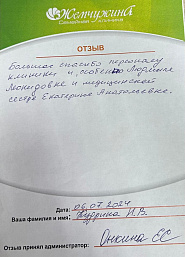 Жемчужина
Семейная клиника
ОТЗЫВ
Большое спасибо персоналу
клиники и особенно Людмиле
Леонидовне и медицинской
сестре Екатерине Анатольевне.
Дата: 06.07.2024
Ваше фамилия и имя: И.В.
Отзыв принял администратор: Онкина ЕС